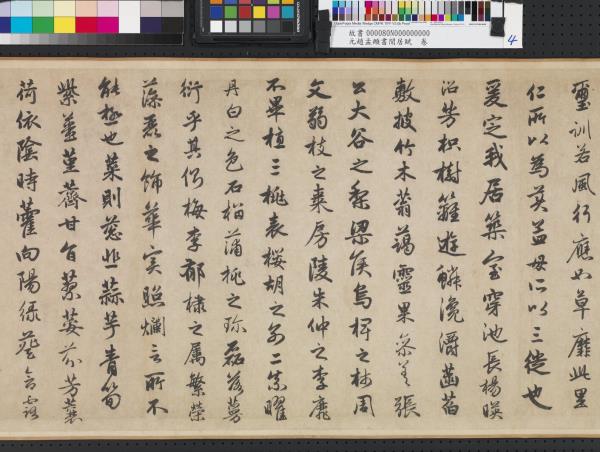 故書 000080N000000000
元趙孟頫書閒居賦 卷
4
璽訓若風行應如草靡此里
仁所以為美孟母所以三徙也
爰定我居築室穿池長楊暎
沼芳枳樹籬遊鱗瀺灂菡萏
敷披竹木蓊藹靈果參差張
公大谷之梨梁侯烏椑之柿周
文弱枝之棗房陵朱仲之李靡
不畢植三桃表櫻胡之別二柰曜
丹白之色石榴蒲桃之珍磊落蔓
衍乎其側梅李郁棣之属繁榮
藻麗之飾華實照爛言所不
能極也菜則葱韭蒜芋青筍
紫薑堇薺甘旨蓼荽芬芳蘘
荷依陰時藿向陽綠葵含露